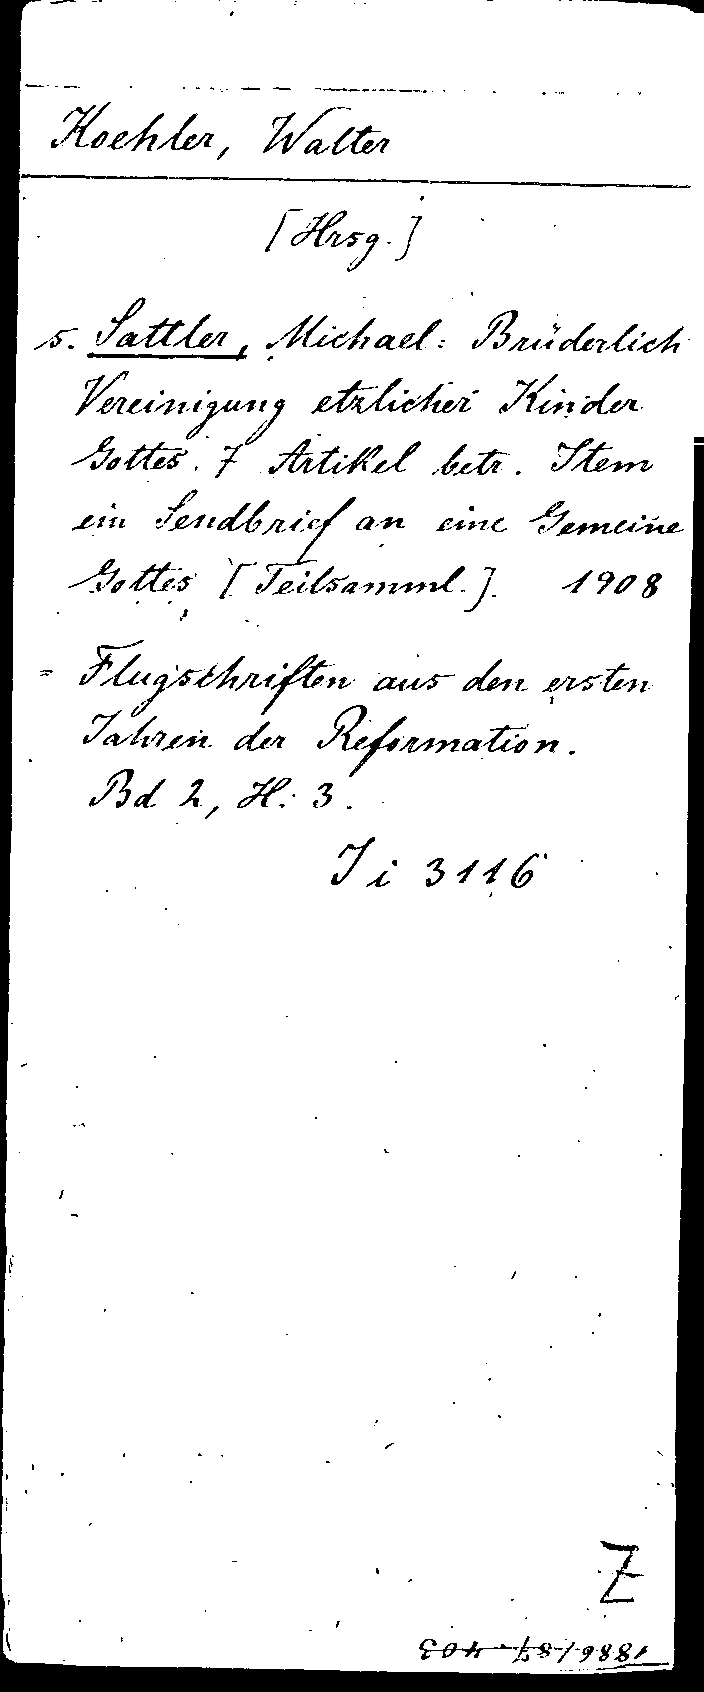 Koehler, Walter
[Hrsg.]
s. Sattler, Michael: Brüderlich
Vereinigung etzlicher Kinder
Gottes. 7 Artikel betr. Item
ein Sendbrief an eine Gemeine
Gottes [Teilsamml.]. 1908
= Flugschriften aus den ersten
Jahren der Reformation.
Bd 2, H. 3.
Ji 3116
Z
1886/87. 403